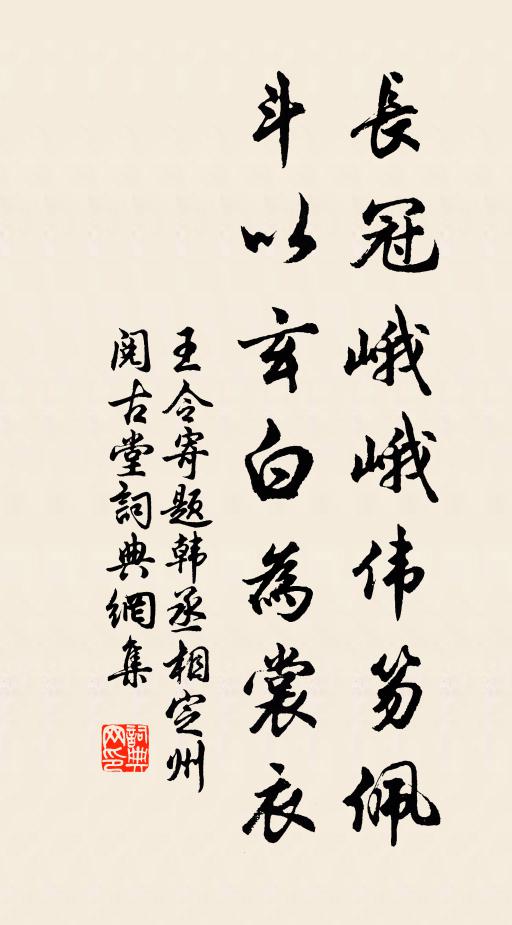 長冠峨峨伟笏佩
斗以玄白為裳衣
王令寄题韩丞相定州
閱古堂詞典網集
詞典网印